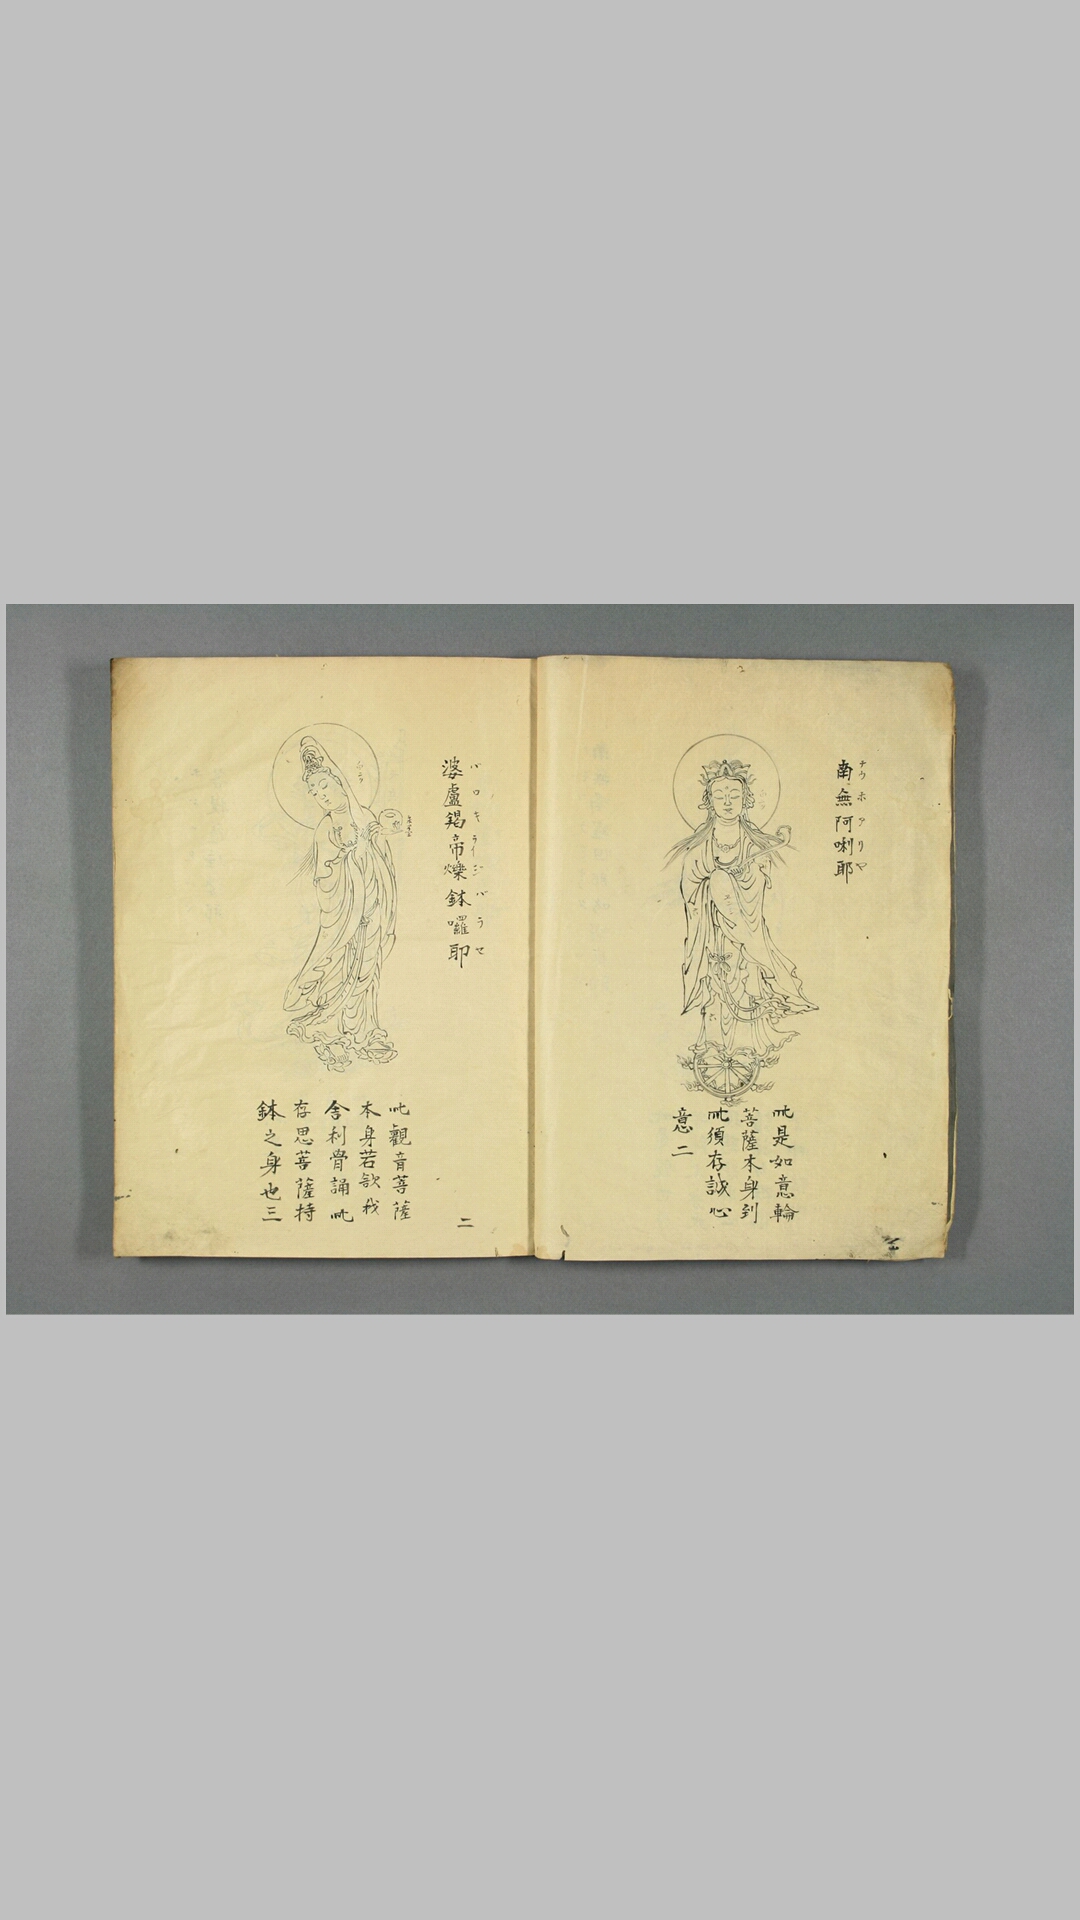 南無阿唎耶
ナウホアリヤ
此是如意輪
菩薩本身到
此須存誠心
意二
婆盧羯帝爍鉢囉耶
此觀音菩薩
本身若欲我
舍利骨誦此
存思菩薩持
鉢之身也三
二